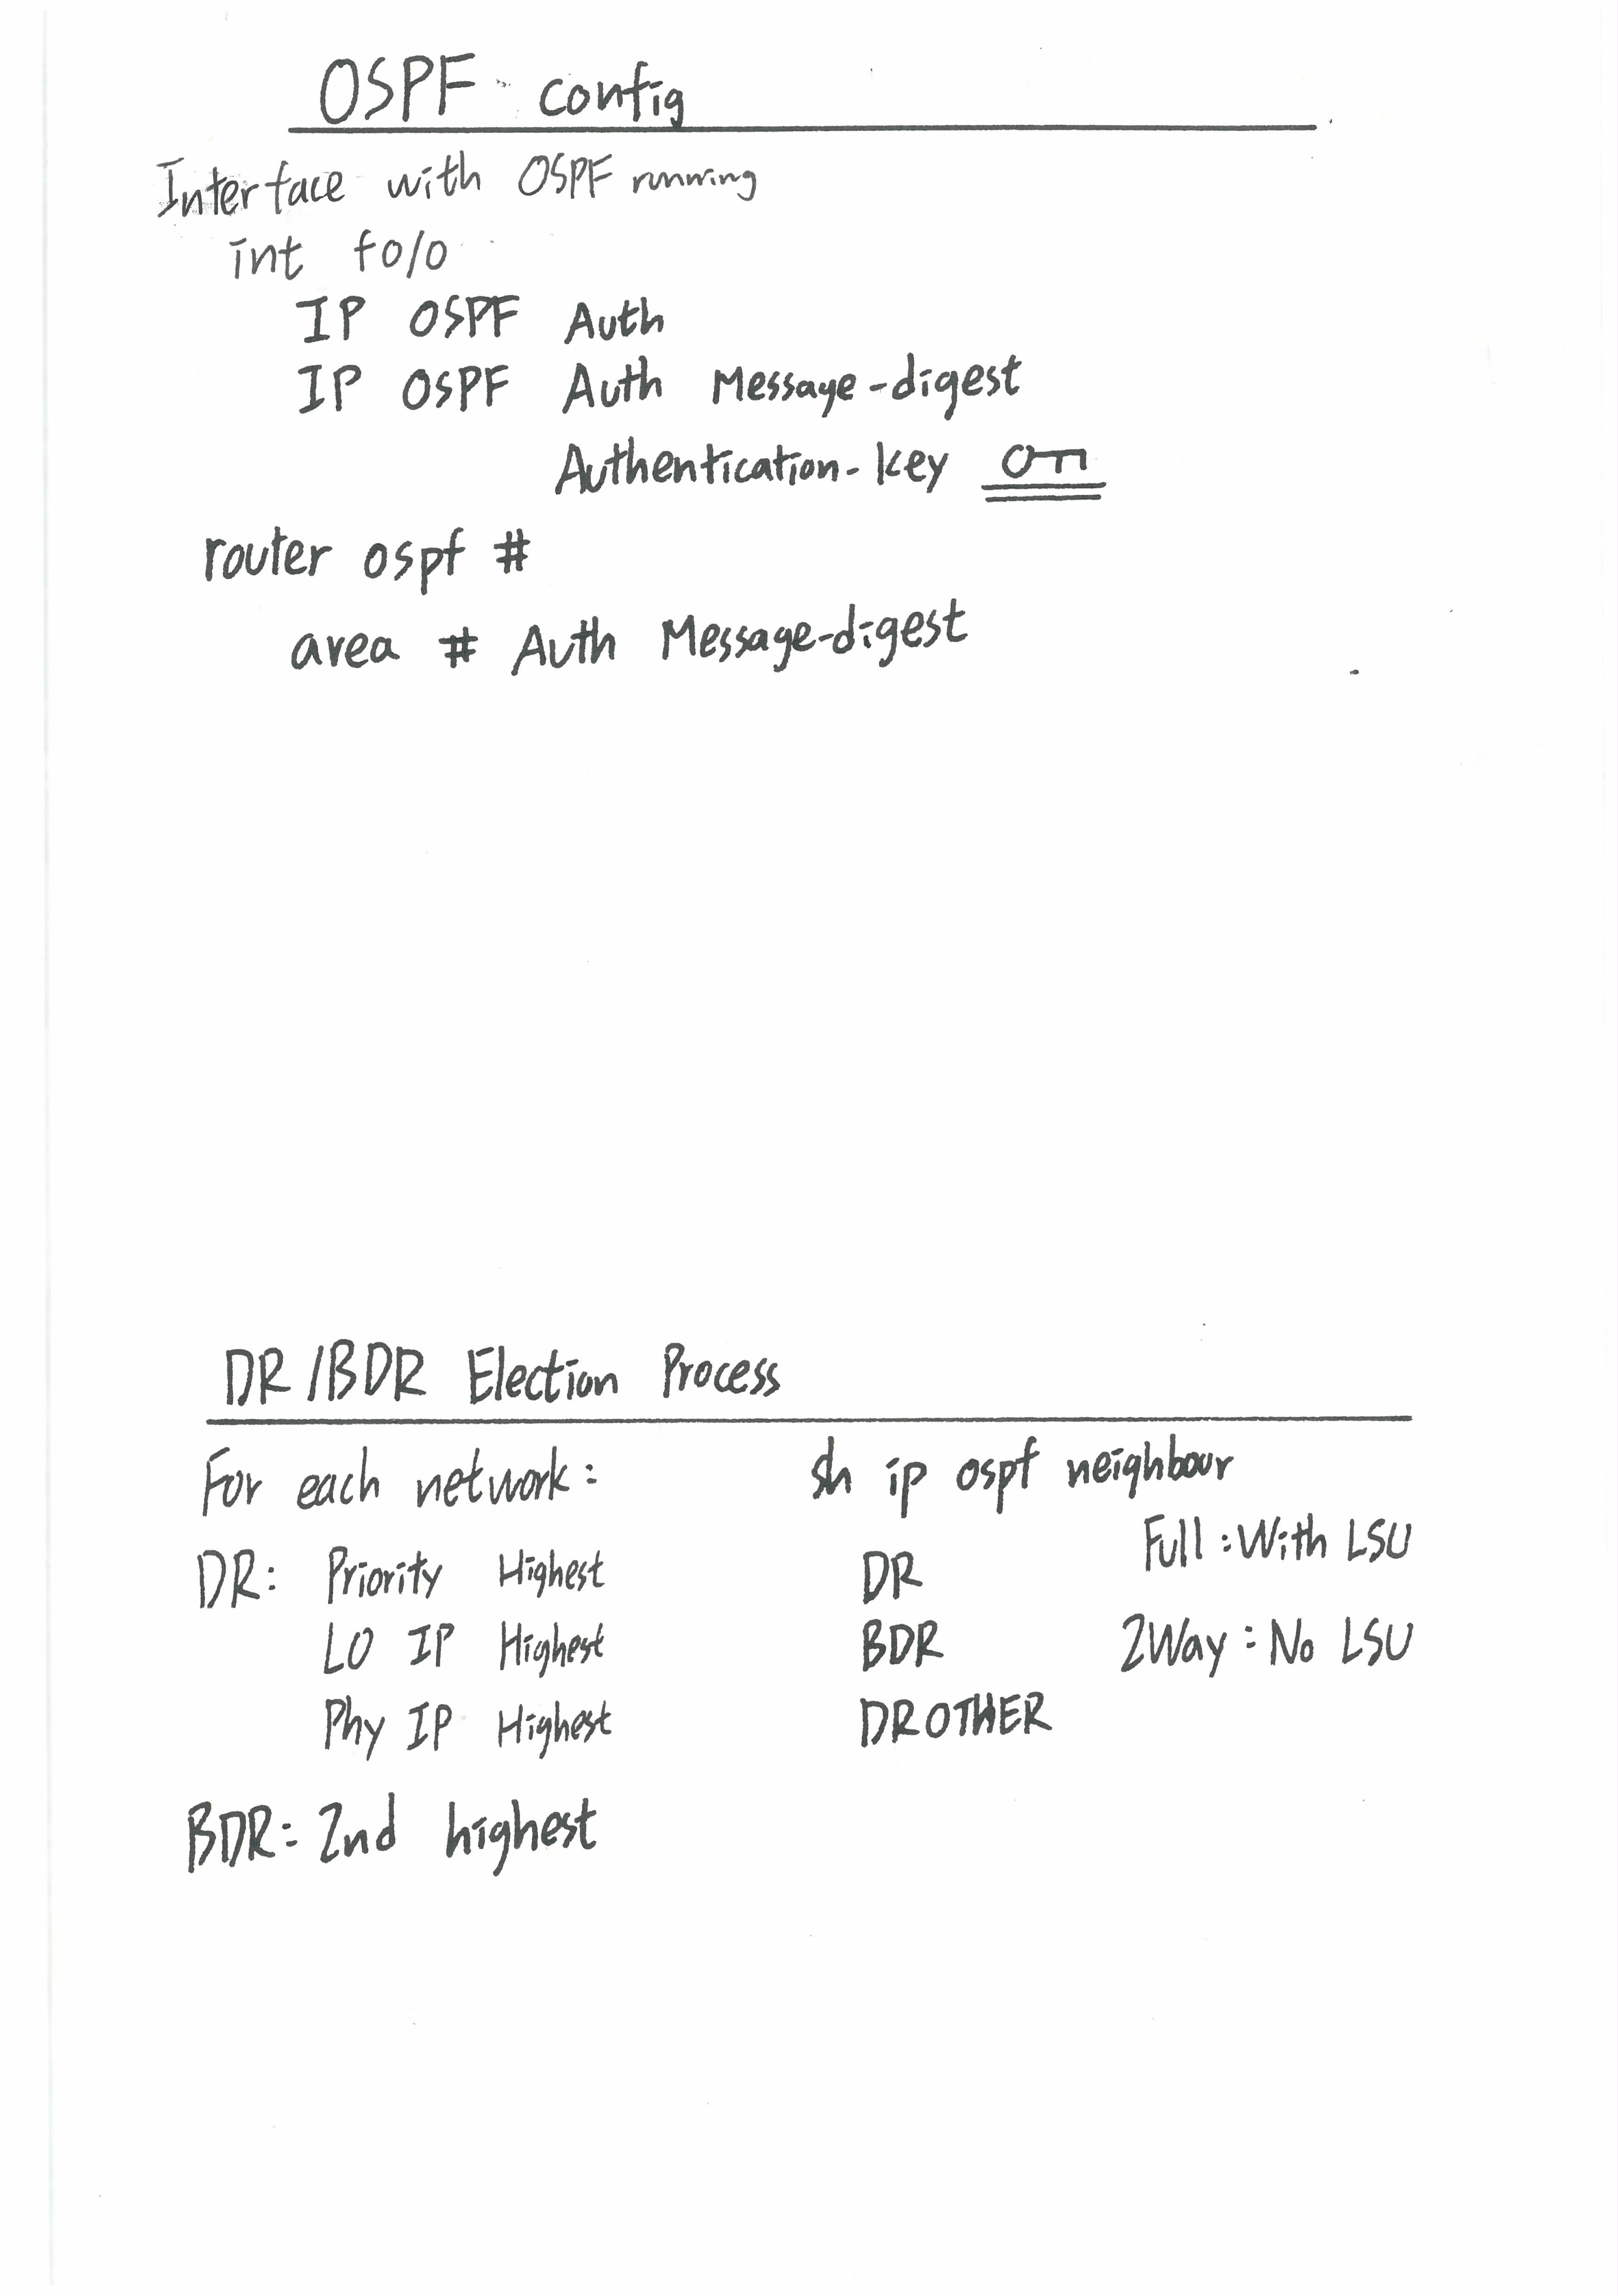 OSPF config
Interface with OSPF running
int f0/0
IP OSPF Auth
IP OSPF Auth Message-digest
Authentication-key
router ospf #
area # Auth Message-digest
DR/BDR Election Process
For each network:
DR: Priority Highest
LO IP Highest
Phy IP Highest
BDR: 2nd highest
sh ip ospf neighbour
DR
BDR
DROTHER
Full: With LSU
2Way: No LSU